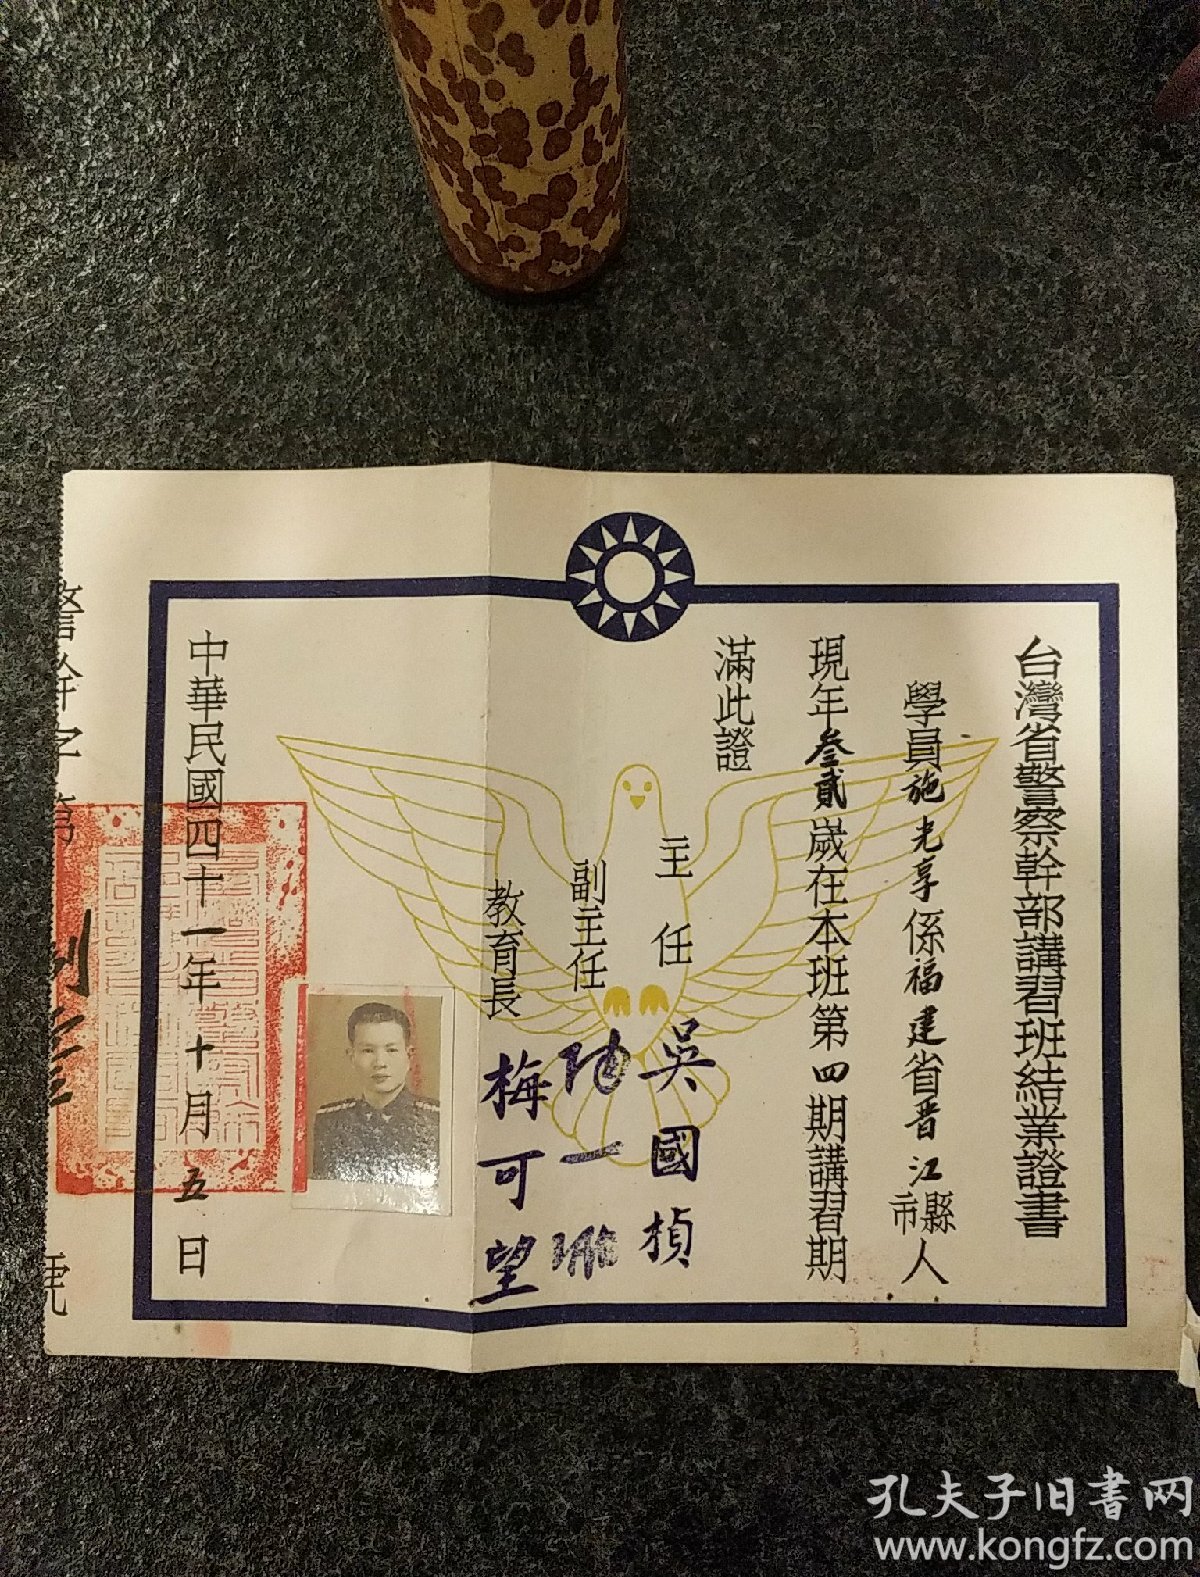 台灣省警察幹部講習班結業證書
學員施光享係福建省晋江縣市人
現年叁貳歲在本班第四期講習期
滿此證
主任吳國楨
副主任
教育長梅可望
中華民國四十一年十月五日
孔夫子旧书网
www.kongfz.com